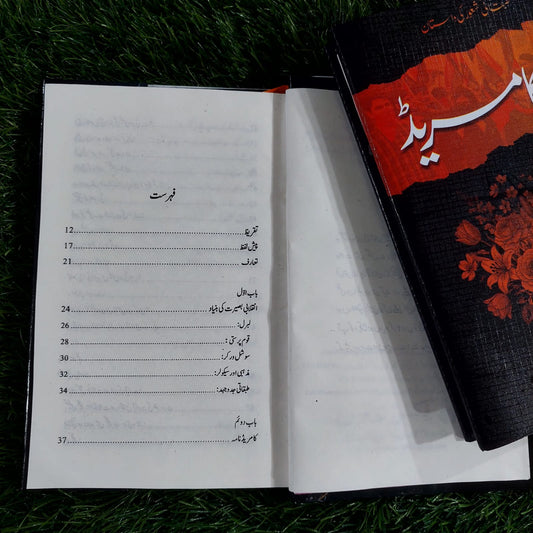 فہرست
تقریظ ........ 12
پیش لفظ ........ 17
تعارف ........ 21
باب اول
انقلابی بصیرت کی بنیاد ........ 24
لبرل: ........ 26
قوم پرستی: ........ 28
سوشل ورکر: ........ 30
مذہبی اور سیکولر: ........ 32
طبقاتی جدوجہد: ........ 34
باب دوئم
کامریڈ نامہ ........ 37
کامریڈ
شعوری داستان